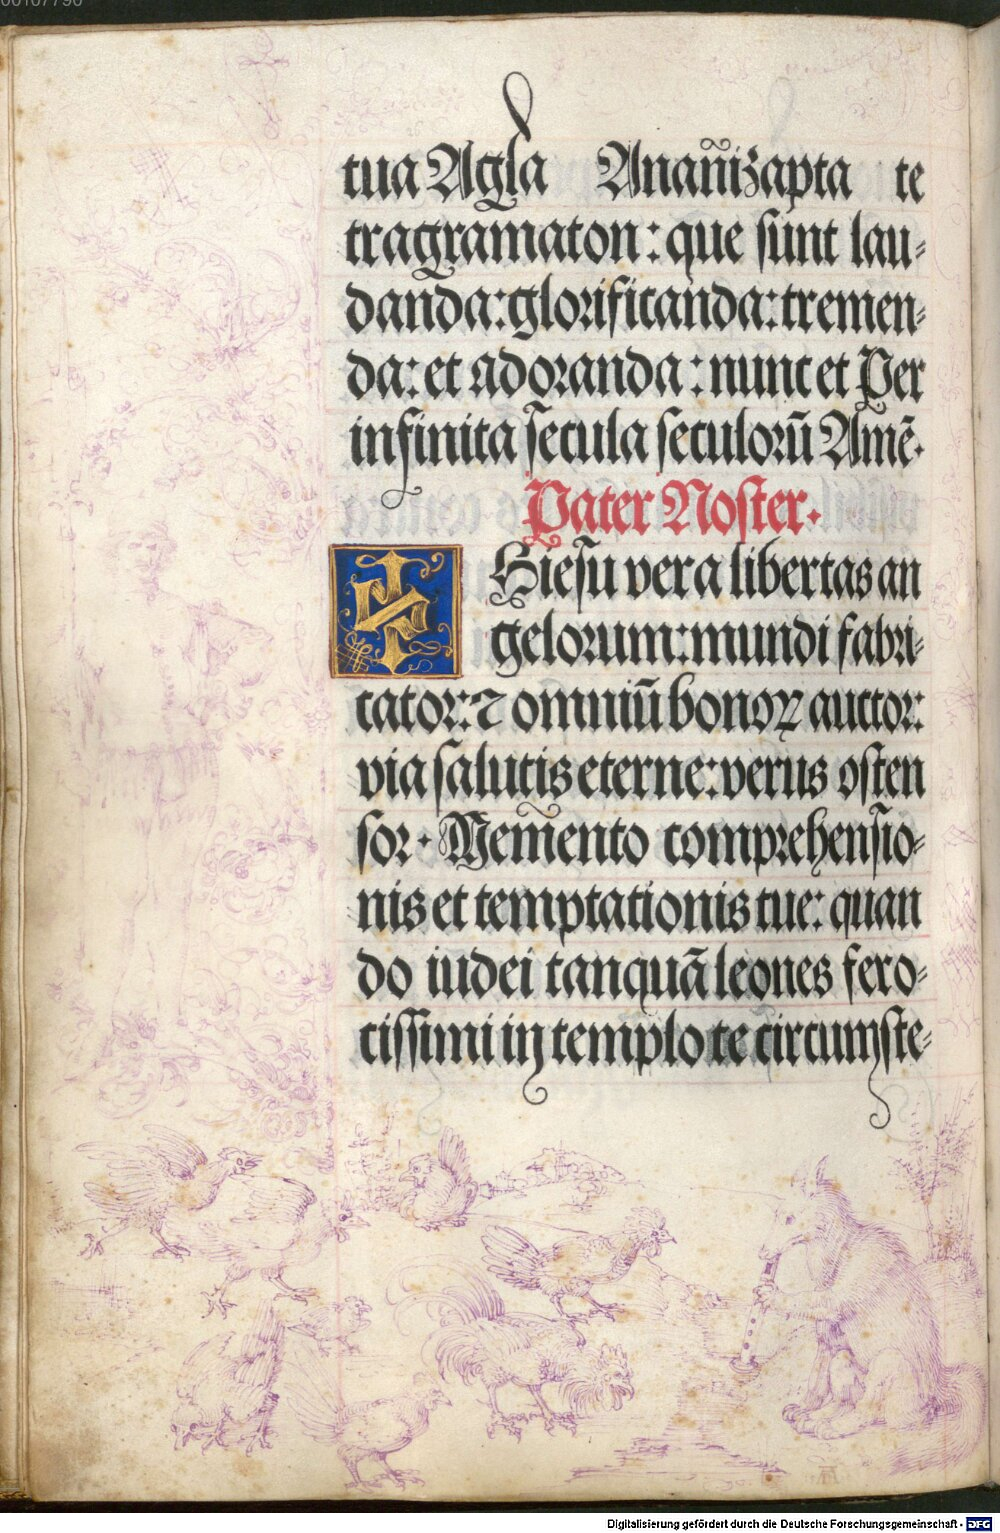 00107790
tua Agla Anañizapta te
tragramaton: que sunt lau-
danda: glorificanda: tremen-
da: et adoranda: nunc et Per
infinita secula seculorū Amē.
Pater Noster.
O Hiesu vera libertas an
gelorum: mundi fabri-
cator: ⁊ omniū bonoꝝ auctor:
via salutis eterne: verus osten
sor. Memento comprehensio-
nis et temptationis tue: quan
do iudei tanquā leones fero-
cissimi in templo te circumste-
Digitalisierung gefördert durch die Deutsche Forschungsgemeinschaft - DFG